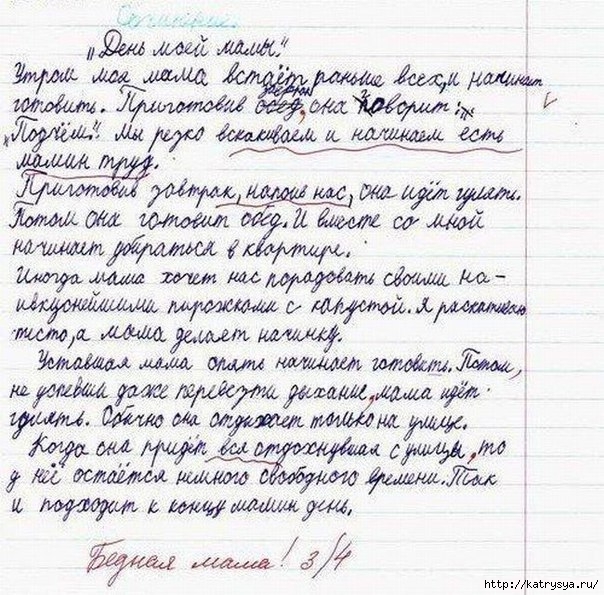 Сочинение.
„День моей мамы."
Утром моя мама встаёт раньше всех, и начинает
готовить. Приготовив завтрак обед, она говорит:
„Подъём". Мы резко вскакиваем и начинаем есть
мамин труд.
Приготовив завтрак, напоив нас, она идёт гулять.
Потом она готовит обед. И вместе со мной
начинает убираться в квартире.
Иногда мама хочет нас порадовать своими на-
ивкуснейшими пирожками с капустой. Я раскатываю
тесто, а мама делает начинку.
Уставшая мама опять начинает готовить. Потом,
не успевши даже перевезти дыхание, мама идёт
гулять. Обычно она отдыхает только на улице.
Когда она придёт вся отдохнувшая с улицы, то
у неё остаётся немного свободного времени. Так
и подходит к концу мамин день.
Бедная мама! 3/4
http://katrysya.ru/